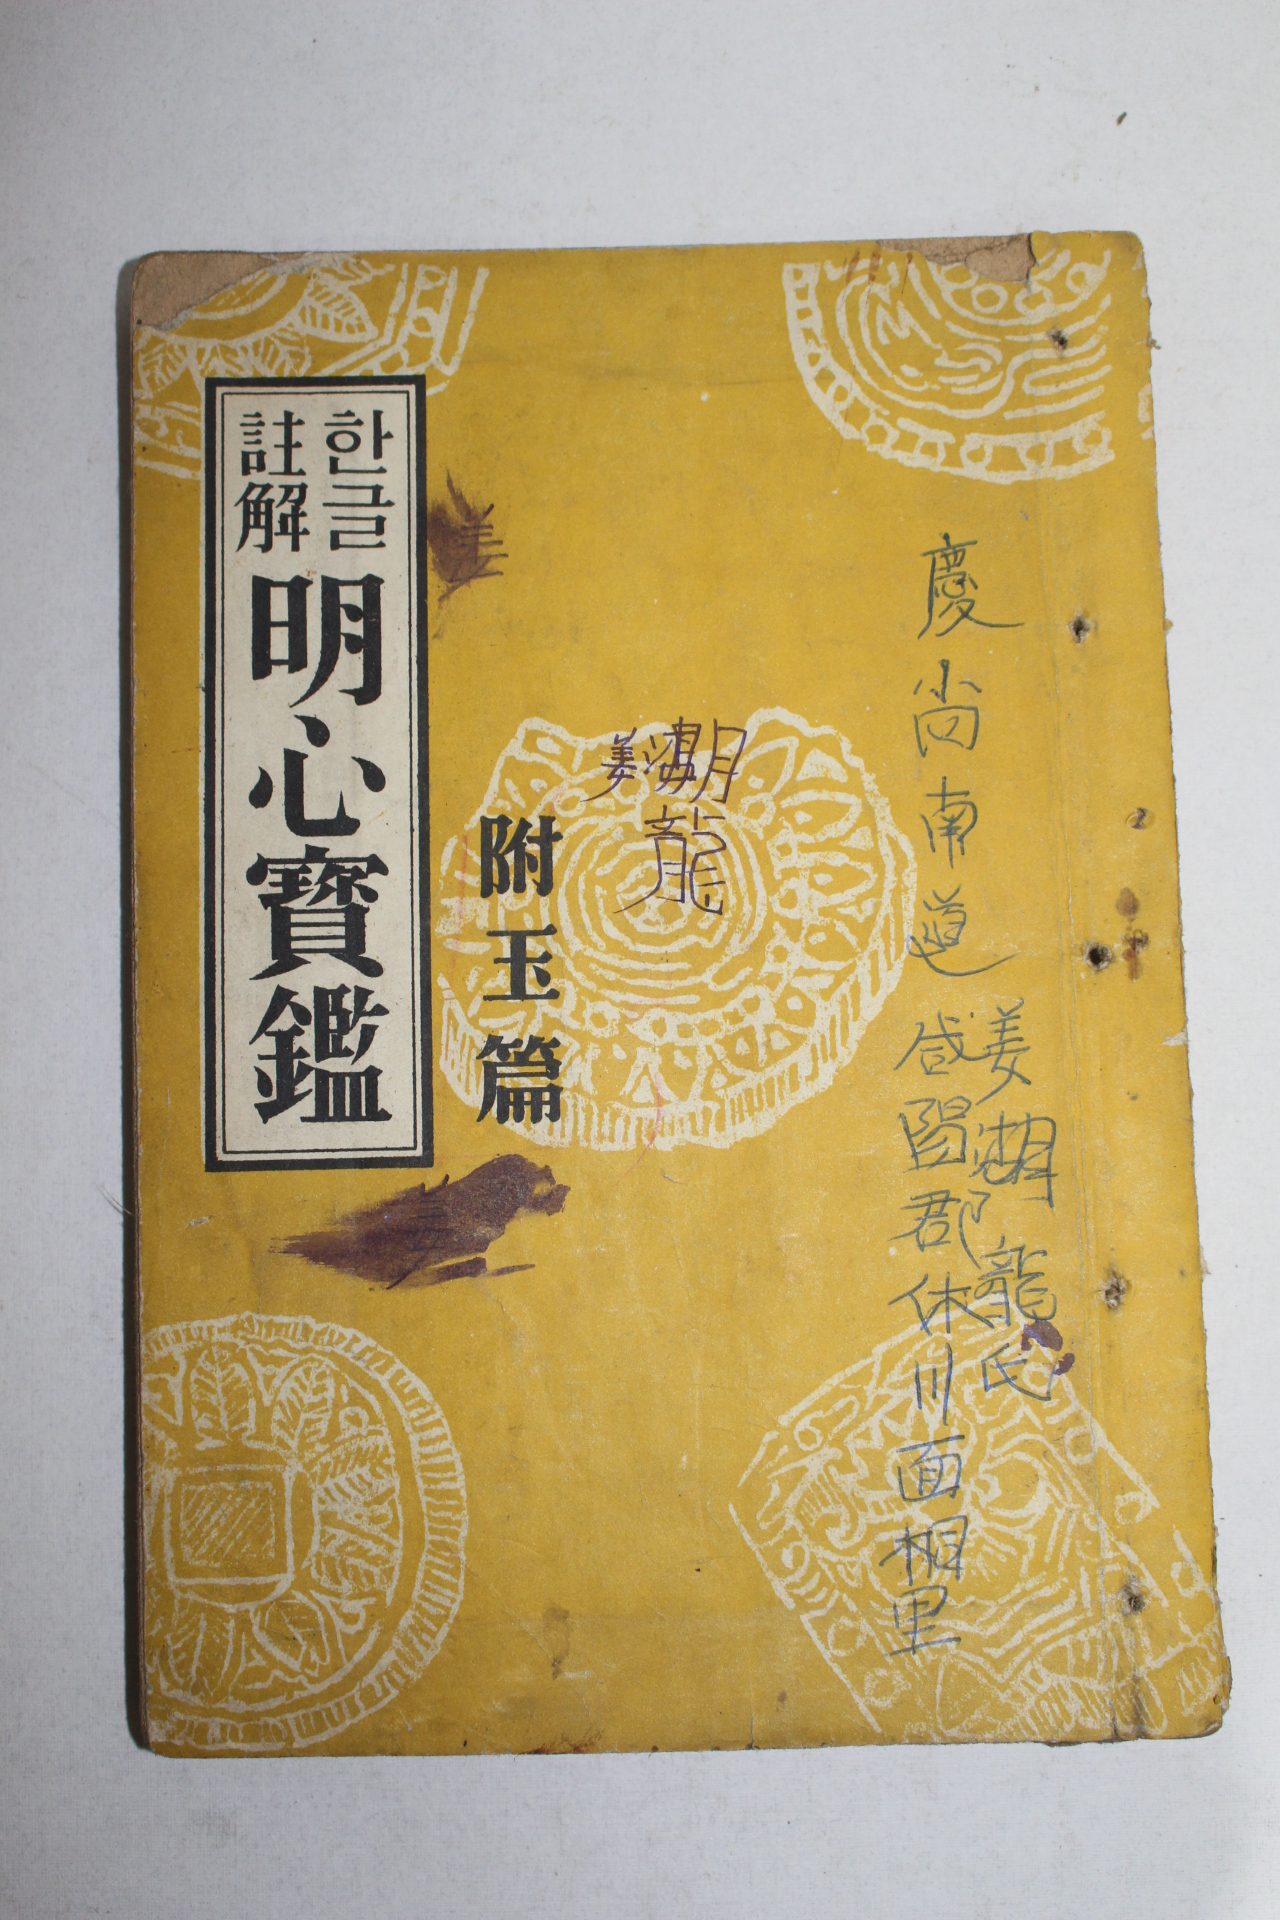 한글
註解
明心寶鑑
附玉篇
姜湖龍
慶尚南道 咸陽郡 休川面 里
姜湖龍氏